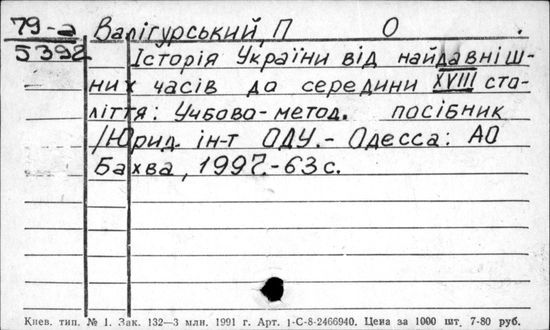 79-а Валігурський, П О
5392 Історія України від найдавніш-
них часів до середини XVIII сто-
ліття: Учбово-метод. посібник
/Юрид. ін-т ОДУ.- Одесса: АО
Бахва, 1997.-63с.
Киев. тип. № 1. Зак. 132—3 млн. 1991 г. Арт. 1-С-8-2466940. Цена за 1000 шт. 7-80 руб.